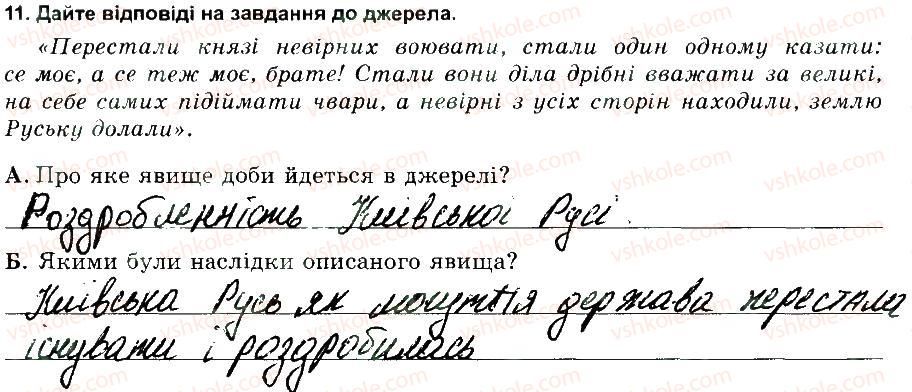 11. Дайте відповіді на завдання до джерела.
«Перестали князі невірних воювати, стали один одному казати:
се моє, а се теж моє, брате! Стали вони діла дрібні вважати за великі,
на себе самих підіймати чвари, а невірні з усіх сторін находили, землю
Руську долали».
А. Про яке явище доби йдеться в джерелі?
Роздробленність Київської Русі.
Б. Якими були наслідки описаного явища?
Київська Русь як могутня держава перестала
існувати і роздробилась